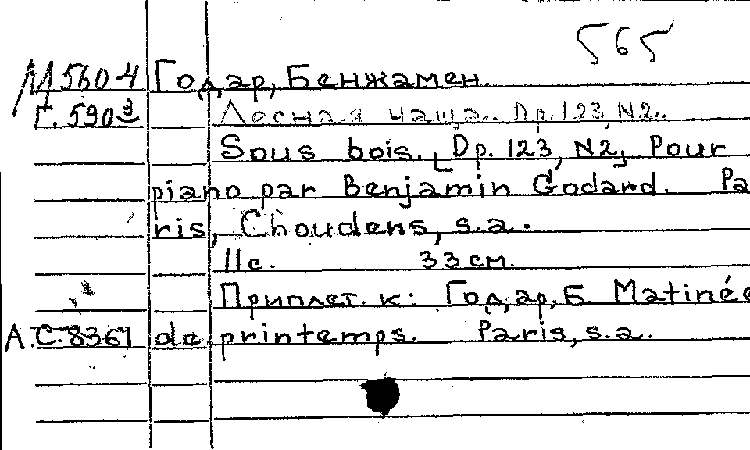 565
М 560-4 Годар, Бенжамен.
Г. 590 Лесная чаща. Ор. 123, N2.
Sous bois. [Op. 123, N2] Pour
piano par Benjamin Godard. Pa
ris, Choudens, s.a.
11с. 33см.
Приплет. к: Годар, Б. Matinée
А.С. 8361 de printemps. Paris, s.a.